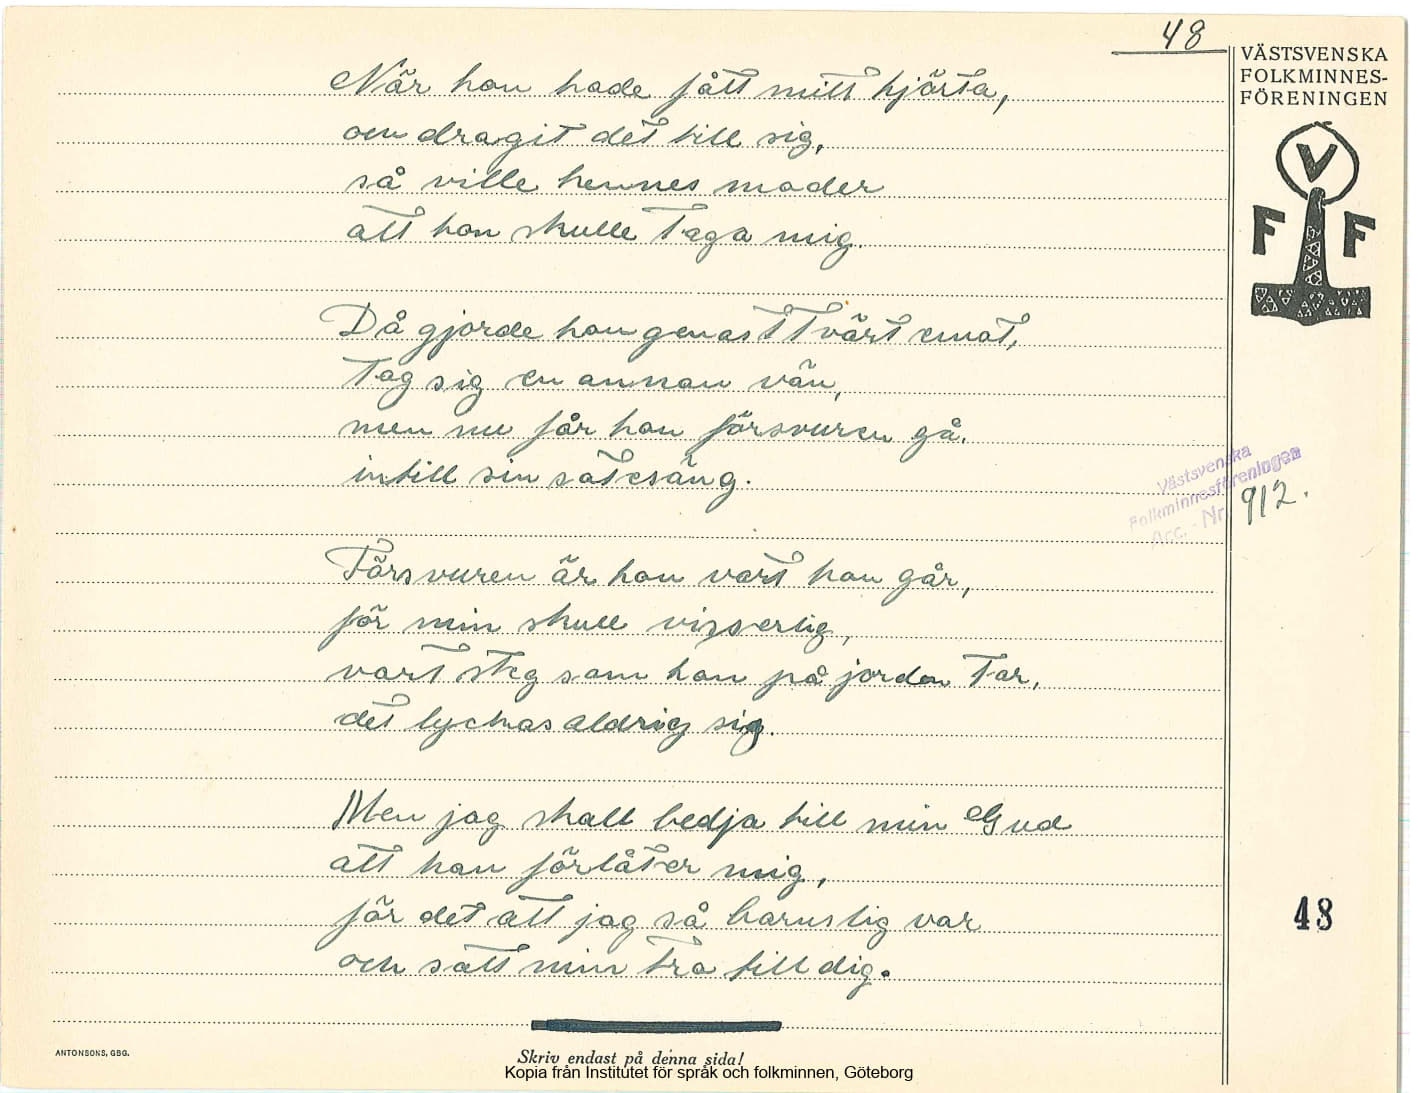 48
VÄSTSVENSKA
FOLKMINNES-
FÖRENINGEN
V
F F
När han hade fått mitt hjärta,
och dragit det till sig,
så ville hennes moder
att han skulle taga mig.
Då gjorde han genast tvärt emot,
tag sig en annan vän,
men nu får han försvuren gå.
intill sin sotesäng.
Försvuren är han vart han går,
för min skull visserlig,
vart steg som han på jorden tar,
det lyckas aldrig sig.
Men jag skall bedja till min Gud
att han förlåter mig,
för det att jag så barnslig var
och satt min tro till dig.
Västsvenska
Folkminnesföreningen
Acc. - Nr. 912.
48
ANTONSONS, GBG.
Skriv endast på denna sida!
Kopia från Institutet för språk och folkminnen, Göteborg